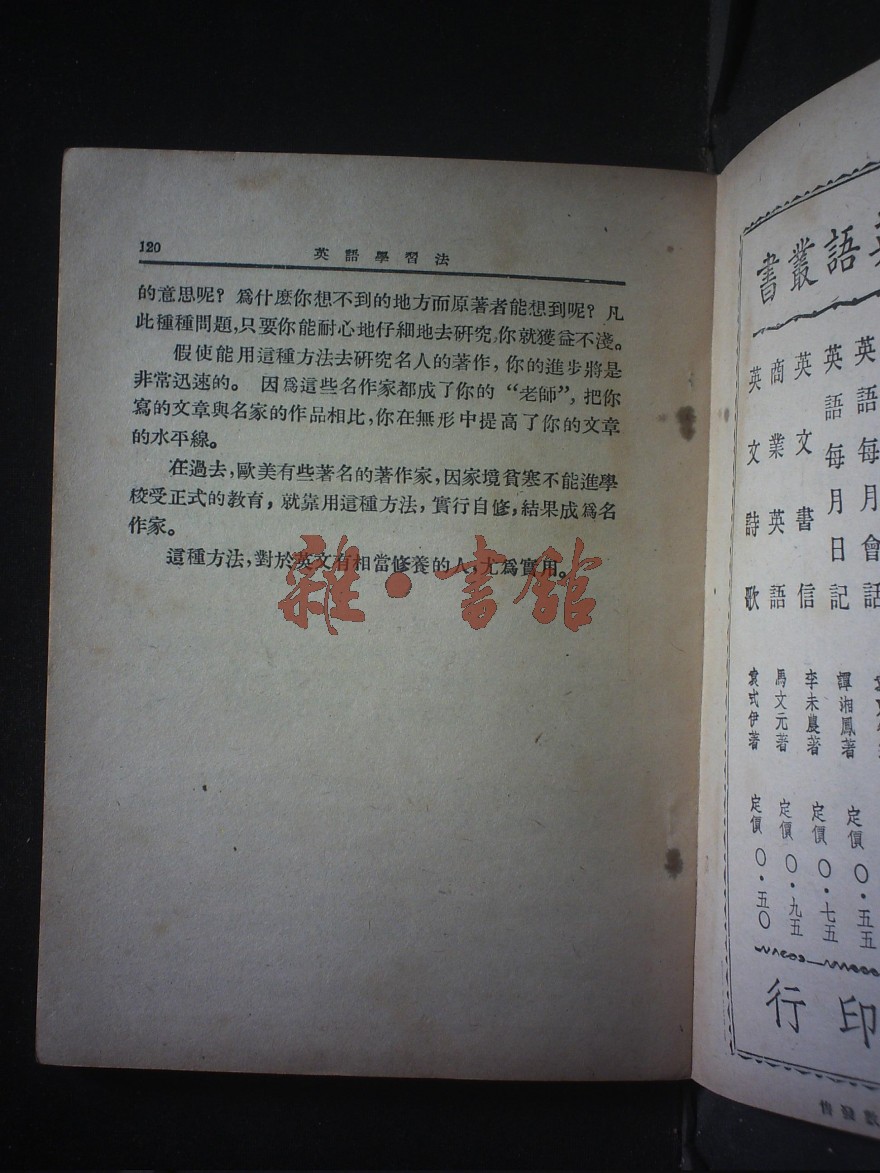 120
英語學習法
的意思呢？爲什麽你想不到的地方而原著者能想到呢？凡
此種種問題，只要你能耐心地仔細地去研究，你就獲益不淺。
假使能用這種方法去硏究名人的著作，你的進步將是
非常迅速的。因爲這些名作家都成了你的“老師”，把你
寫的文章與名家的作品相比，你在無形中提高了你的文章
的水平線。
在過去，歐美有些著名的著作家，因家境貧寒不能進學
校受正式的敎育，就靠用這種方法，實行自修，結果成爲名
作家。
這種方法，對於英文有相當修養的人，尤爲實用。
雜·書館
語叢書
英語每月會話
英語每月日記 譚湘鳳著 定價〇·五五
英文書信 李未農著 定價〇·七五
商業英語 馬文元著 定價〇·九五
英文詩歌 袁式伊著 定價〇·五〇
印行
發售